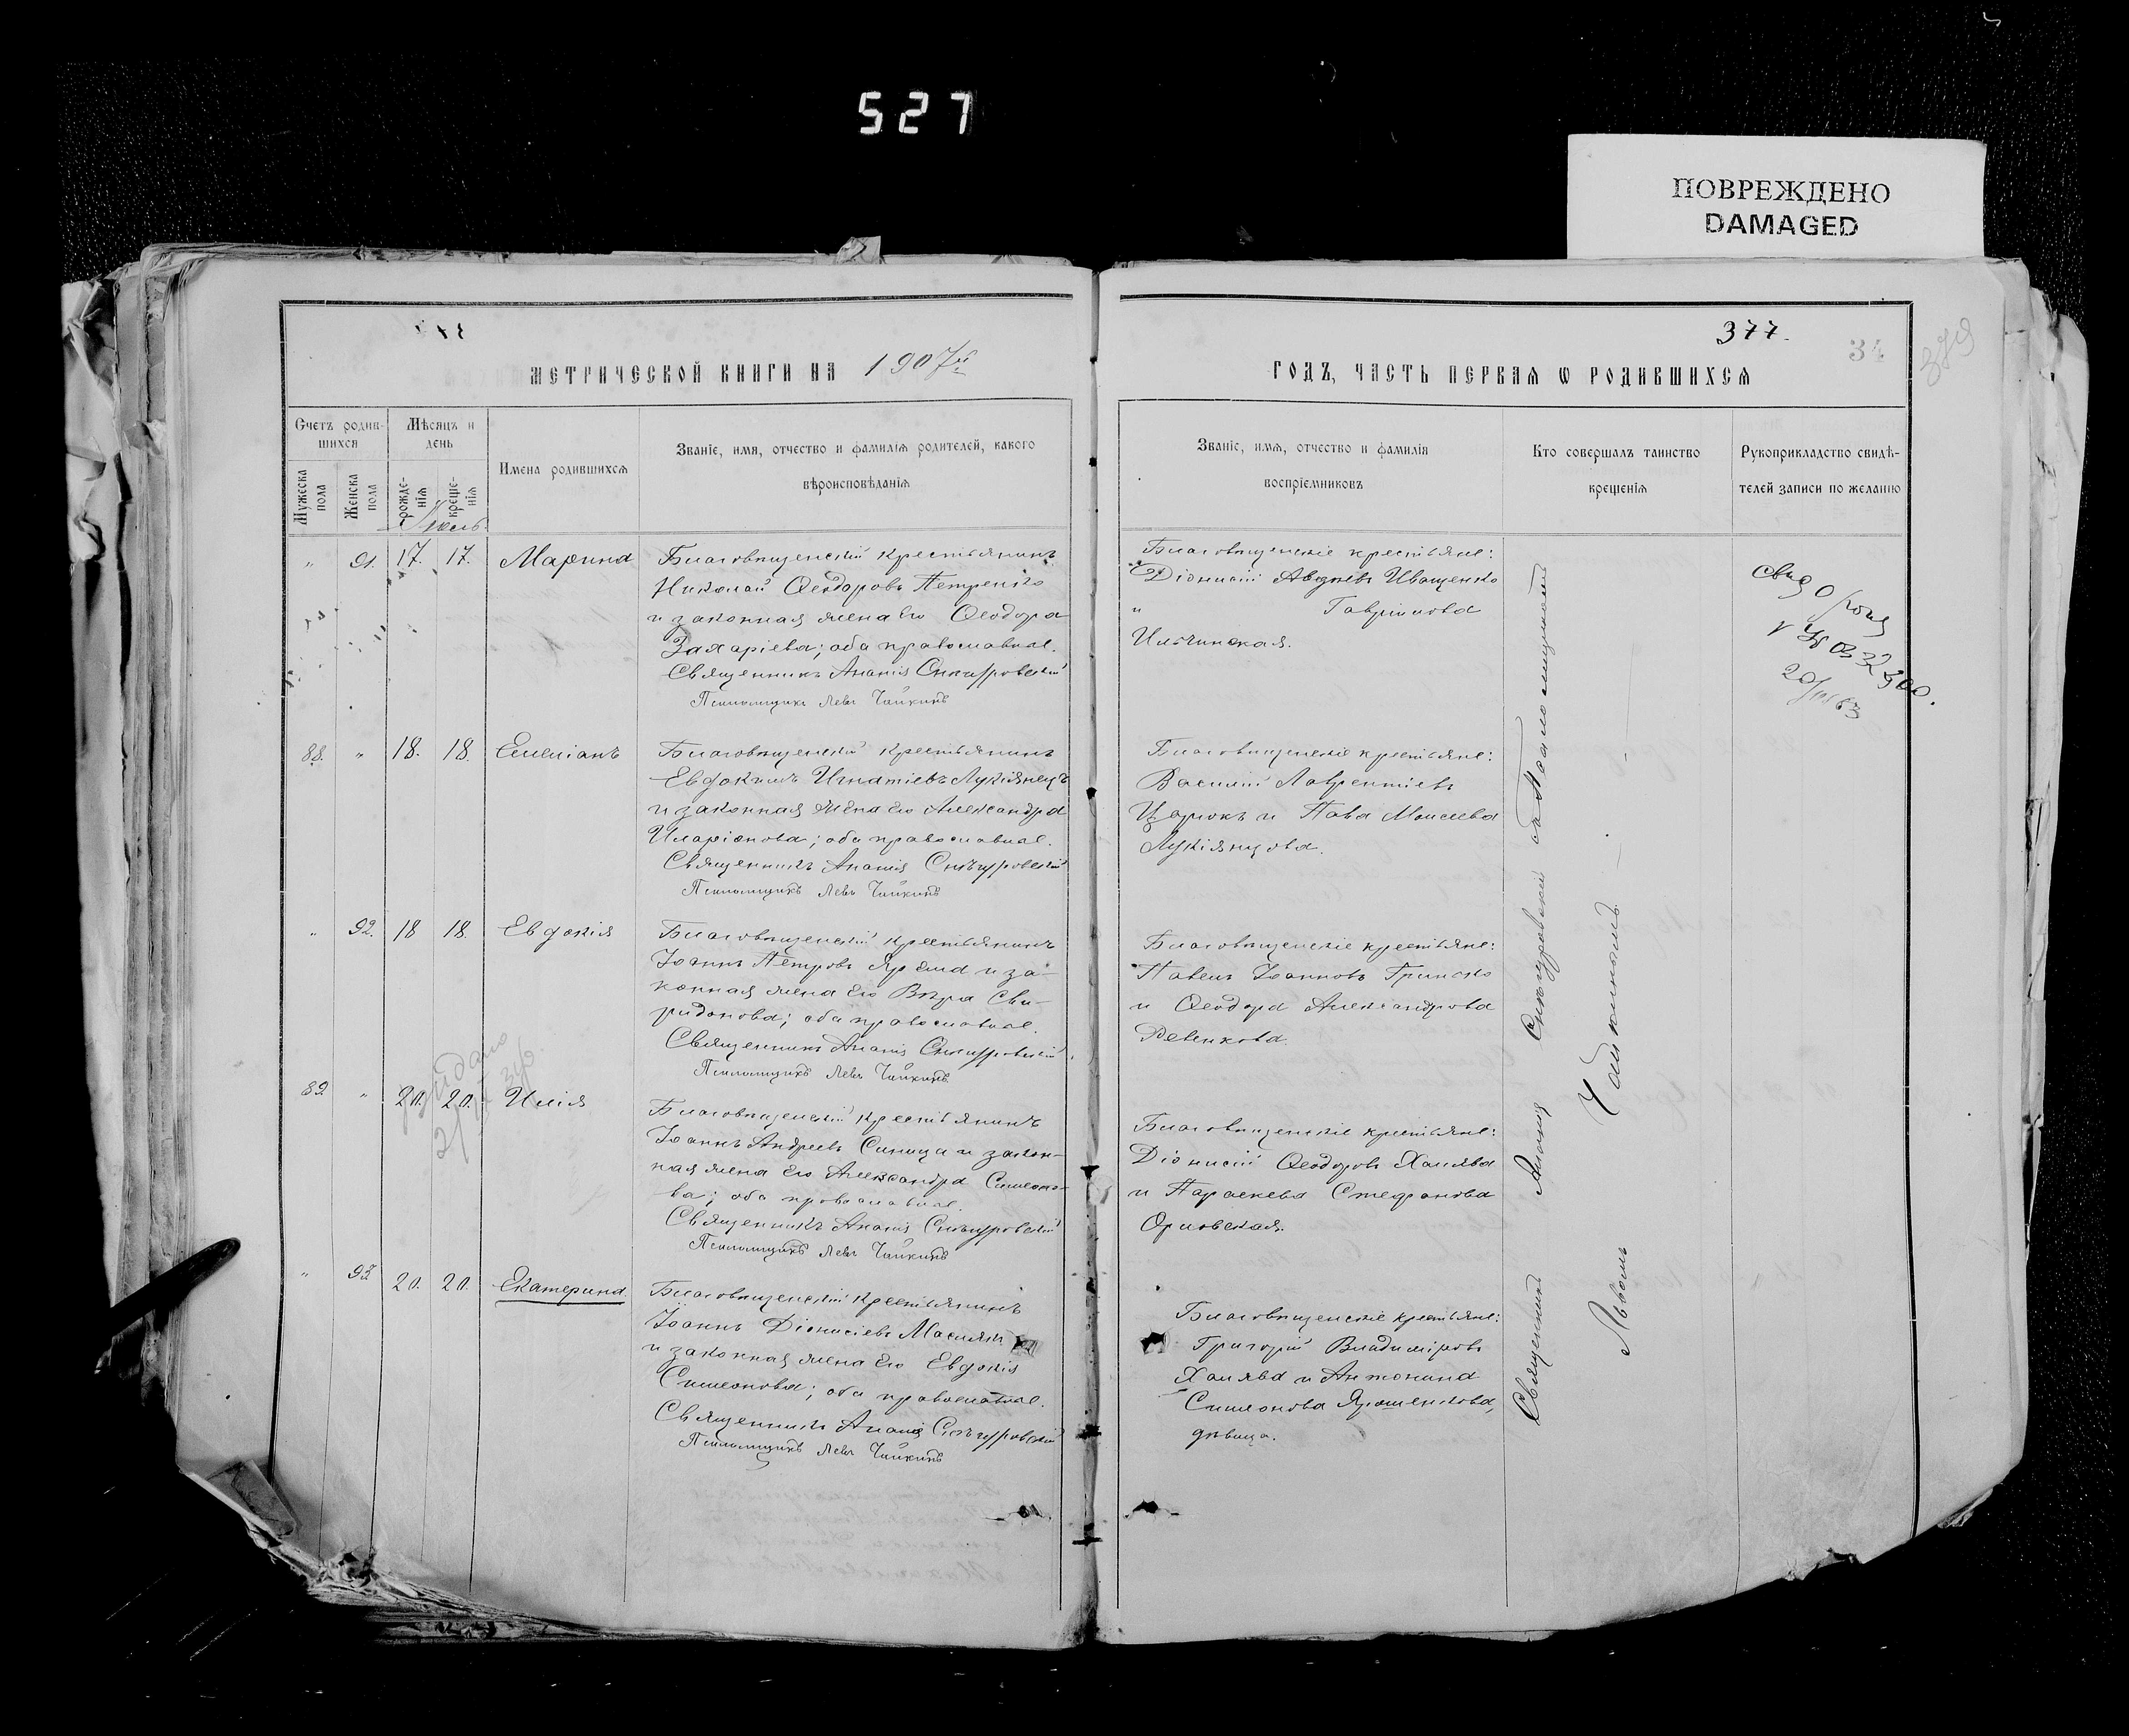 527
ПОВРЕЖДЕНО
DAMAGED
МЕТРИЧЕСКОЙ КНИГИ НА 1907й
Счетъ родив-
шихся
Мужеска
пола
Женска
пола
Мѣсяцъ и
день
рожде-
нія
креще-
нія
Имена родившихся
Званіе, имя, отчество и фамилія родителей, какого
вѣроисповѣданія
Іюль.
" 91. 17. 17. Марина
Благовѣщенскій крестьянинъ
Николай Ѳеодоровъ Петренко
и законная жена его Ѳеодора
Захаріева; оба православные.
Священникъ Ананія Снѣгуровскій
Псаломщикъ Левъ Чайкинъ
88. " 18. 18. Емеліанъ
Благовѣщенскій крестьянинъ
Евдокимъ Игнатіевъ Лукіянецъ
и законная жена его Александра
Иларіонова; оба православные.
Священникъ Ананія Снѣгуровскій
Псаломщикъ Левъ Чайкинъ
" 92. 18 18. Евдокія
Благовѣщенскій крестьянинъ
Іоаннъ Петровъ Ярема и за-
конная жена его Вѣра Сви-
ридонова; оба православные.
Священникъ Ананія Снѣгуровскій
Псаломщикъ Левъ Чайкинъ
89 " 20. 20. Илія
Благовѣщенскій крестьянинъ
Іоаннъ Андреевъ Синица и закон-
ная жена его Александра Симеоно-
ва; оба православные.
Священникъ Ананія Снѣгуровскій
Псаломщикъ Левъ Чайкинъ
" 93 20. 20. Екатерина
Благовѣщенскій крестьянинъ
Іоаннъ Діонисіевъ
и законная жена его Евдокія
Симеонова; оба православные.
Священникъ Ананія Снѣгуровскій
Псаломщикъ Левъ Чайкинъ
377.
34
379
ГОДЪ, ЧАСТЬ ПЕРВАЯ Ѡ РОДИВШИХСЯ
Званіе, имя, отчество и фамилія
воспріемниковъ
Кто совершалъ таинство
крещенія
Рукоприкладство свидѣ-
телей записи по желанію
Благовѣщенскіе крестьяне:
Діонисій Авдіевъ Иващенко
и Гавріилова
Ильчинская.
Благовѣщенскіе крестьяне:
Василій Лаврентіевъ
Царюкъ и Пава Моисеева
Лукіянцова.
Благовѣщенскіе крестьяне:
Павелъ Іоанновъ Гринько
и Ѳеодора Александрова
Ревенкова.
Благовѣщенскіе крестьяне:
Діонисій Ѳеодоровъ Халява
и Параскева Стефанова
Орловская.
Благовѣщенскіе крестьяне:
Григорій Владиміровъ
Халява и Антонина
Симеонова Ярошенкова,
дѣвица.
Священникъ Ананія Снѣгуровскій съ Псаломщикомъ
Львомъ Чайкинымъ.